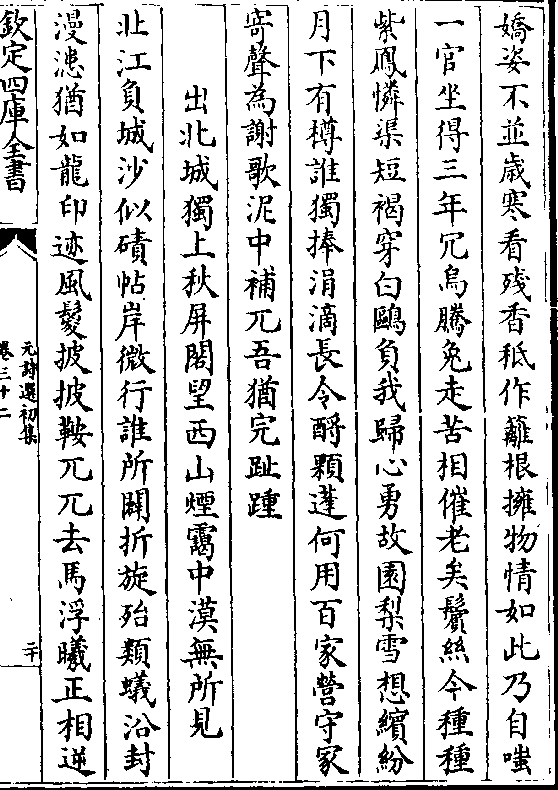 嬌姿不並歲寒看殘香秪作籬根擁物情如此乃自嗤
一官坐得三年冗烏騰兔走苦相催老矣鬢絲今種種
紫鳳憐渠短褐穿白鷗負我歸心勇故園梨雪想繽紛
月下有樽誰獨捧涓滴長令酹顆蓬何用百家營守冢
寄聲為謝歌泥中補兀吾猶完趾踵
出北城獨上秋屏閣望西山煙靄中漠無所見
北江負城沙似磧帖岸微行誰所闢折旋殆類蟻沿封
漫漶猶如龍印迹風鬉披披鞍兀兀去馬浮曦正相逆
欽定四庫全書
元詩選初集
卷三十二
二十